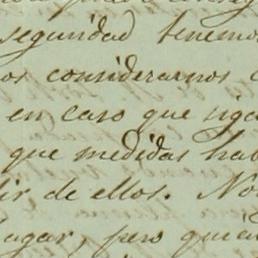 seguridad tenemos
os considerarnos
en caso que siga
que medidas hab
dir de ellos. No
agar, pero quia